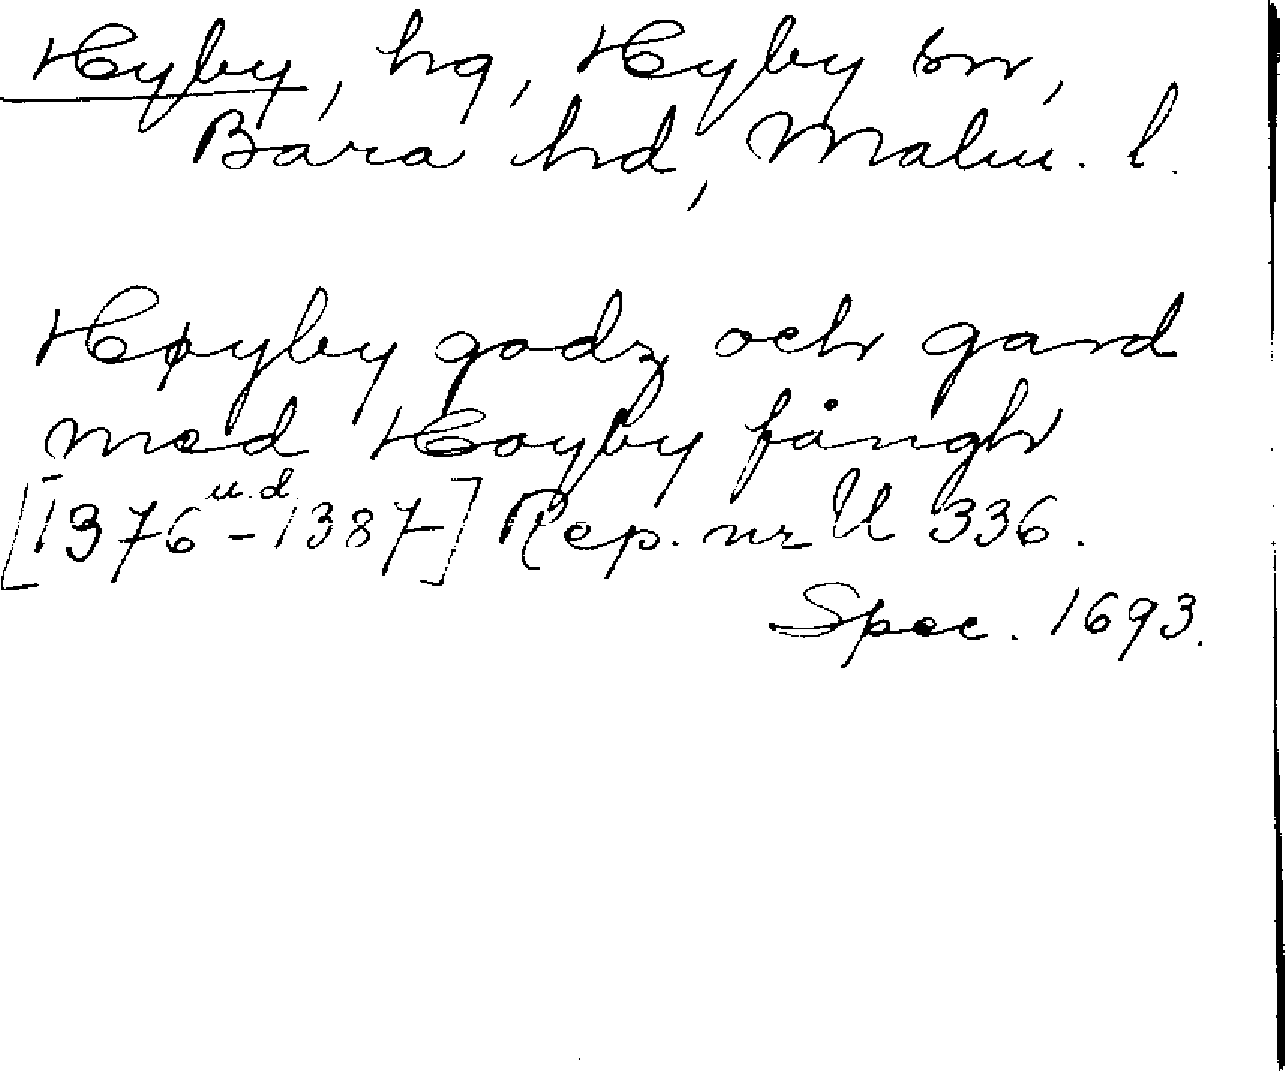 Hyby, hg, Hyby sn,
Bara hd, Malm. l.
Høyby godz och gard
med Hoyby fångh
[1376 u.d. - 1387] Rep. nr U 336.
Spec. 1693.